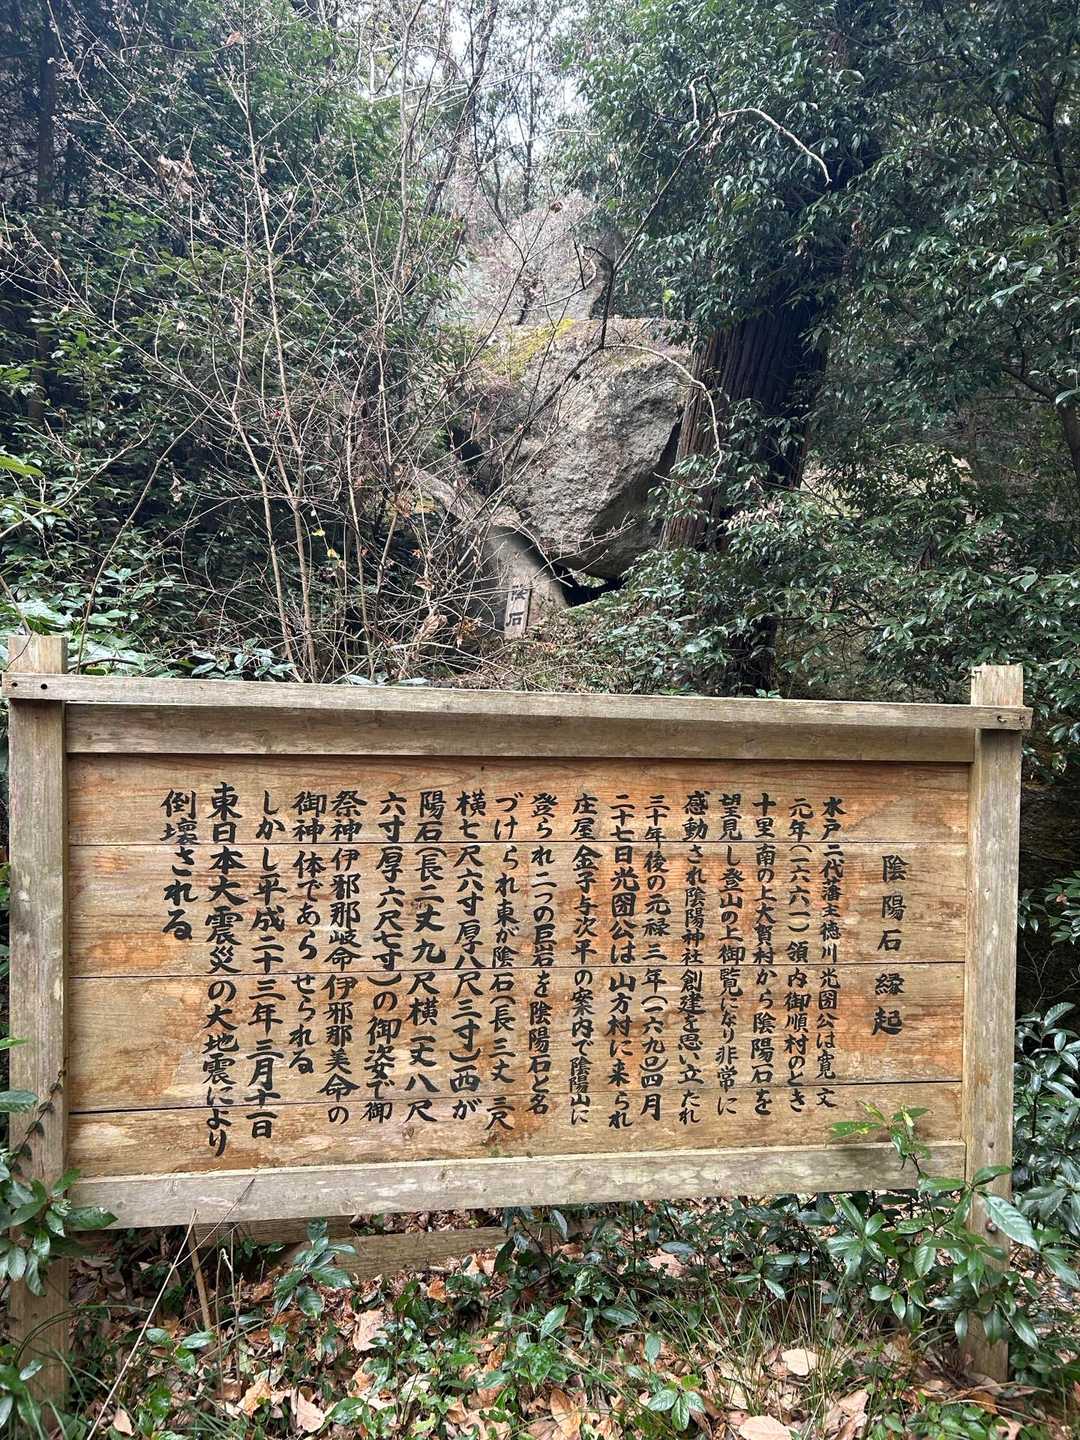 陰石
陰陽石縁起
水戸二代藩主徳川光圀公は寛文
元年(一六六一)領内御順村のとき
十里南の上大賀村から陰陽石を
望見し登山の上御覧になり非常に
感動され陰陽神社創建を思い立たれ
三十年後の元禄三年(一六九〇)四月
二十七日光圀公は山方村に来られ
庄屋金子与次平の案内で陰陽山に
登られ二つの巨岩を陰陽石と名
づけられ東が陰石(長三丈三尺
横七尺六寸厚八尺三寸)西が
陽石(長二丈九尺横一丈八尺
六寸厚六尺七寸)の御姿で御
祭神伊邪那岐命伊邪那美命の
御神体であらせられる
しかし平成二十三年三月十一日
東日本大震災の大地震により
倒壊される